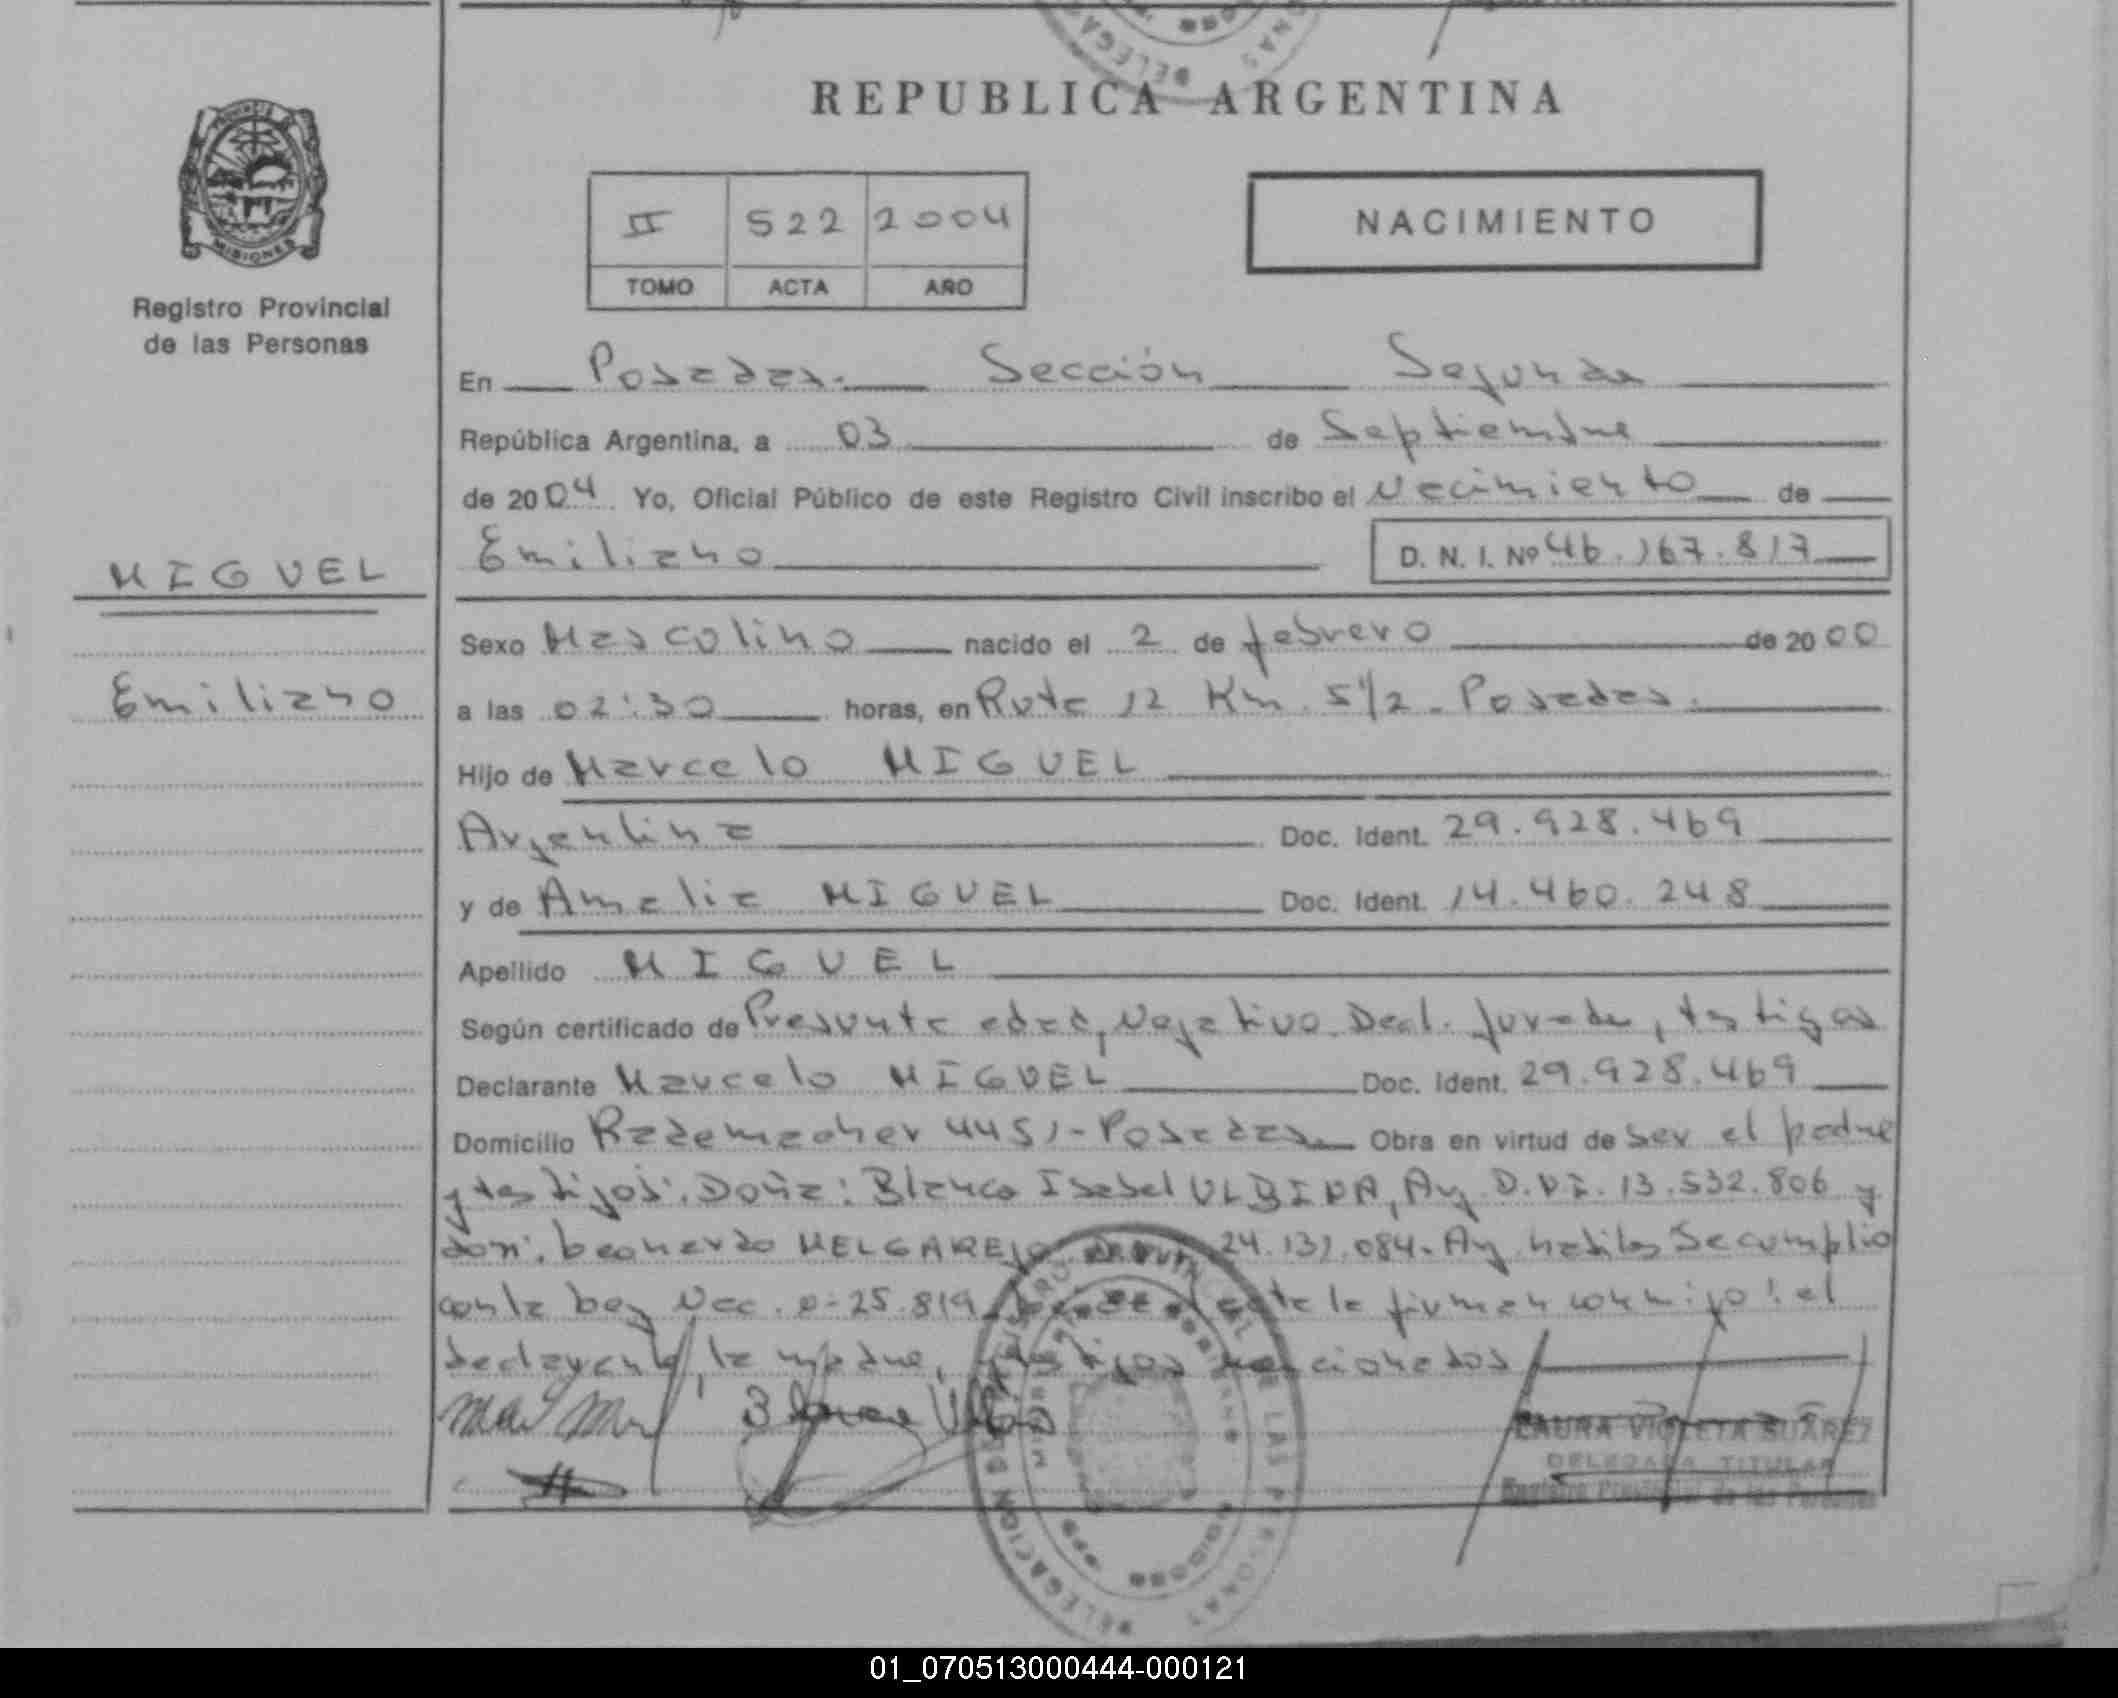 REPUBLICA ARGENTINA
PROVINCIA
MISIONES
Registro Provincial
de las Personas
II 522 2004
TOMO ACTA AÑO
NACIMIENTO
En Posadas. Sección Segunda
República Argentina, a 03 de Septiembre
de 2004 Yo, Oficial Público de este Registro Civil inscribo el Nacimiento de
Emiliano D. N. I. Nº 46.167.817
MIGUEL
Sexo Masculino nacido el 2 de febrero de 2000
Emiliano
a las 02:30 horas, en Ruta 12 Km. 5 1/2 - Posadas.
Hijo de Marcelo MIGUEL
Argentina Doc. Ident. 29.928.469
y de Amalia MIGUEL Doc. Ident. 14.460.248
Apellido MIGUEL
Según certificado de Presunta edad, Negativo Decl. Jurada, testigos
Declarante Marcelo MIGUEL Doc. Ident. 29.928.469
Domicilio Rademacher 4451 - Posadas Obra en virtud de ser el padre
y testigos: Doña: Blanca Isabel ULBINA, Arg. D.N.I. 13.532.806 y
don: Leonardo MELGAREJO 24.131.084. Arg habiles Se cumplio
con la Ley Nac. 25.819 acta la firman conmigo: el
declarante, la madre, testigos mencionados
LAURA VIOLETA SUAREZ
DELEGADA TITULAR
Registro Provincial de las Personas
DELEGACION
01_070513000444-000121